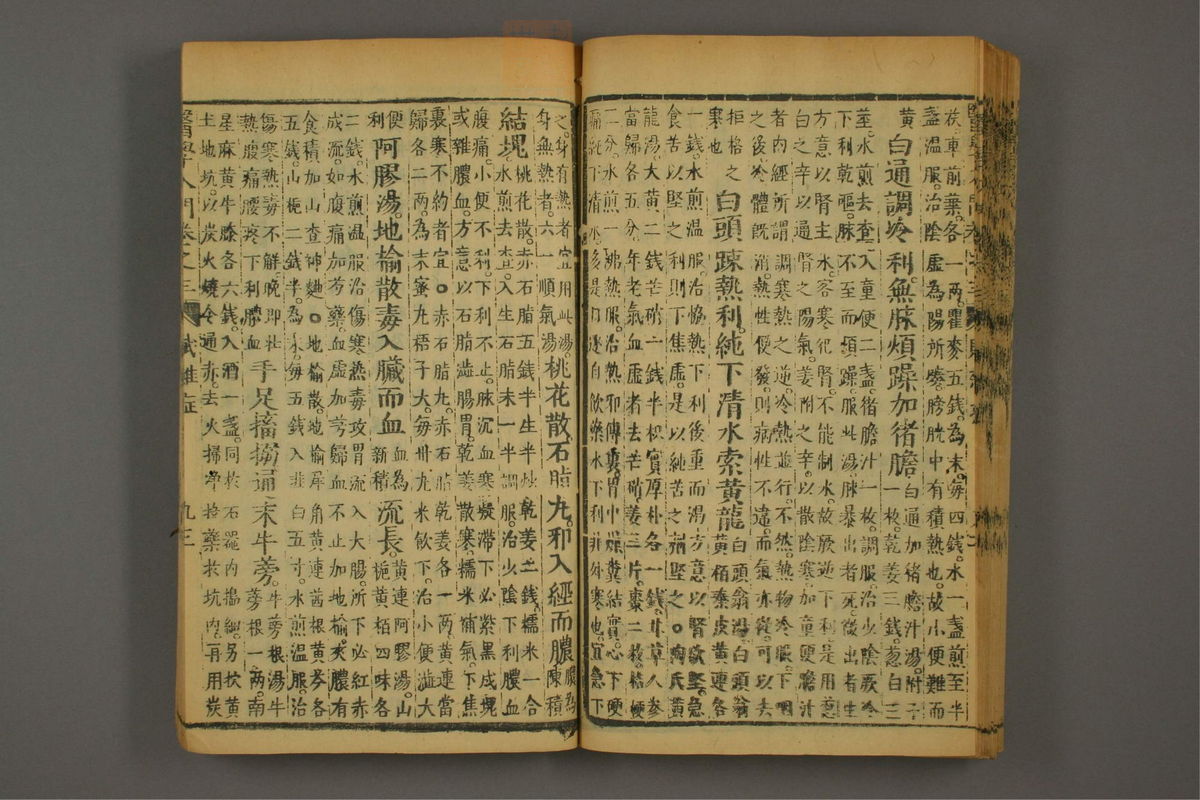 車前葉各一兩瞿麥五錢為末每四錢水一盞煎至半
盞温服治陰虛為陽所腠膀胱中有積熱也故小便難而
黃
白通調疼利無脉煩躁加猪膽
白通加猪膽汁湯附子
一枚乾姜三錢葱白三
莖水煎去查入童便二盞猪膽汁一枚調服治少陰厥冷
下利乾嘔脉不至而煩躁服此湯脉暴出者死微出者生
方意以腎主水客寒犯腎不能制水故厥逆下利是用葱
白之辛以通腎之陽氣姜附之辛以散陰寒加童便膽汁
者內經所謂調寒熱之逆冷熱並行不然熱物冷服下咽
之後冷體既消熱性便發則病性不違而氣亦從可以去
拒格之
寒也
白頭踈熱利純下清水索黃龍
白頭翁湯白頭翁
黃栢秦皮黃連各
一錢水煎温服治恊熱下利後重而渴方意以腎欲堅急
食苦以堅之利則下焦虛是以純苦之劑堅之○陶氏黃
龍湯大黃二錢芒硝一錢半枳實厚朴各一錢甘草人參
當歸各五分年老氣血虛者去芒硝姜三片棗二枚桔梗
二分水煎一沸熱服治熱邪傳裏胃中燥糞結實心下硬
痛純下清水自飲藥水下利非外寒也宜急下
之身有熱者宜用此湯
身無熱者六一順氣湯
桃花散石脂丸邪入經而膿
膿為
陳積
結塊
桃花散赤石脂五錢半生半炒乾姜二錢糯米一合
水煎去查入生石脂末一半調服治少陰下利膿血
腹痛小便不利下利不止脉沉血寒凝滯下必紫黑成塊
或雜膿血方意以石脂澁腸胃乾姜散寒糯米補氣下焦
裏寒不約者宜○赤石脂丸赤石脂乾姜各一兩黃連當
歸各二兩為末蜜丸梧子大每卅丸米飲下治小便澁大
便
利
阿膠湯地榆散毒入臟而血
血為
新積
流長
黃連阿膠湯山
梔黃栢四味各
二錢水煎温服治傷寒熱毒攻胃流入大腸所下必紅赤
成流如腹痛加芍藥血虛加芎歸血不止加地榆夾膿有
食積加山查神麯○地榆散地榆犀角黃連茜根黃芩各
五錢山梔二錢半為末每五錢入韭白五寸水煎温服治
傷寒熱毒不解晚即壯
熱腹痛腰疼下利膿血
手足搐搦通末牛蒡
牛蒡根湯牛
蒡根一兩南
星麻黃牛膝各六錢入酒一盞同於石器內搗細另伏黃
土地坑以炭火燒令通赤去火掃淨投藥於坑內再用炭
醫學入門卷之三
雜症
九三